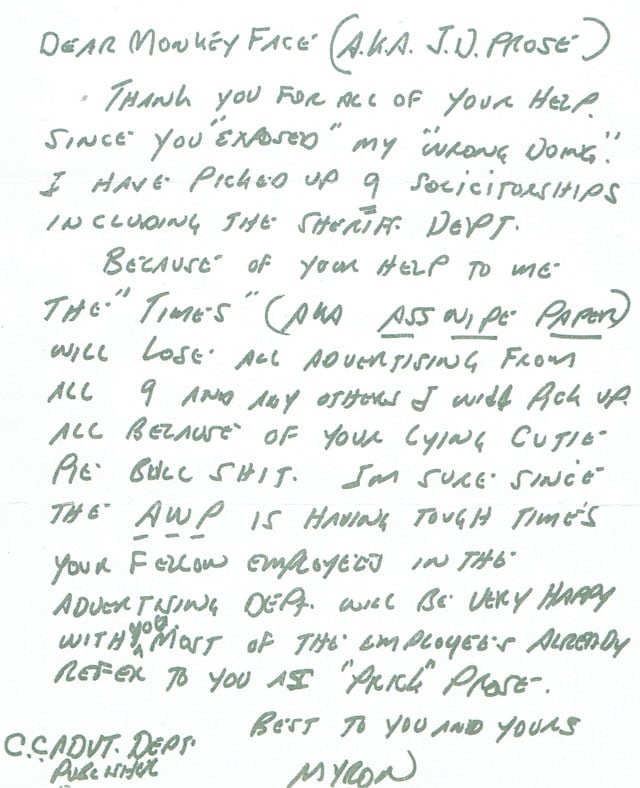 DEAR MONKEY FACE (A.K.A. J.D. PROSE)
THANK YOU FOR ALL OF YOUR HELP.
SINCE YOU "EXPOSED" MY "WRONG DOING"
I HAVE PICKED UP 9 SOLICITORSHIPS
INCLUDING THE SHERIFF DEPT.
BECAUSE OF YOUR HELP TO ME
THE "TIMES" (AKA ASS WIPE PAPER)
WILL LOSE ALL ADVERTISING FROM
ALL 9 AND ANY OTHERS I WILL PICK UP.
ALL BECAUSE OF YOUR LYING CUTIE
PIE BULL SHIT. I'M SURE SINCE
THE AWP IS HAVING TOUGH TIME'S
YOUR FELLOW EMPLOYEES IN THE
ADVERTISING DEPT. WILL BE VERY HAPPY
WITH YOU. MOST OF THE EMPLOYEE'S ALREADY
REFER TO YOU AS "PRICK" PROSE.
BEST TO YOU AND YOURS
C.C. ADVT. DEPT.
PUBLISHER
MYRON